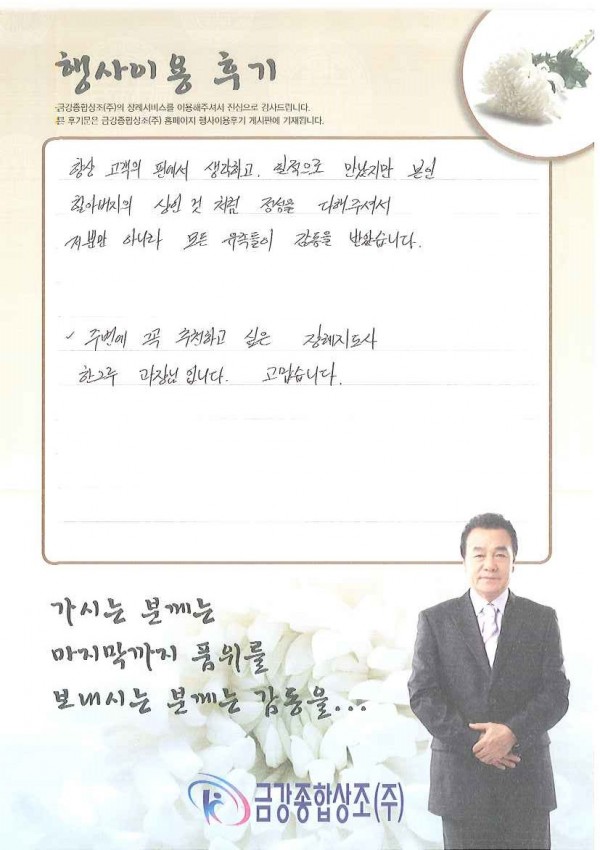 행사이용 후기
금강종합상조(주)의 장례서비스를 이용해주셔서 진심으로 감사드립니다.
본 후기문은 금강종합상조(주) 홈페이지 행사이용후기 게시판에 기재됩니다.
항상 고객의 편에서 생각하고, 일적으로 만났지만 본인
할아버지의 상인 것 처럼 정성을 다해주셔서
저뿐만 아니라 모든 유족들이 감동을 받았습니다.
✓ 주변에 꼭 추천하고 싶은 장례지도사
한그루 과장님 입니다. 고맙습니다.
가시는 분께는
마지막까지 품위를
보내시는 분께는 감동을...
금강종합상조(주)